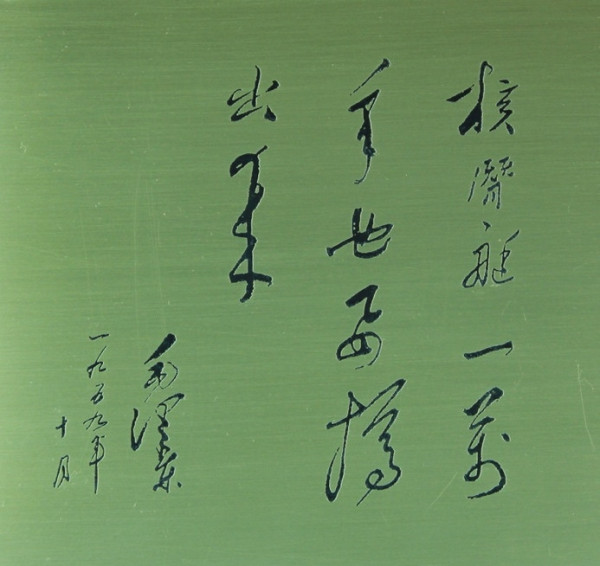 核潜艇一萬
年也要搞
出来
毛澤东
一九五九年
十月